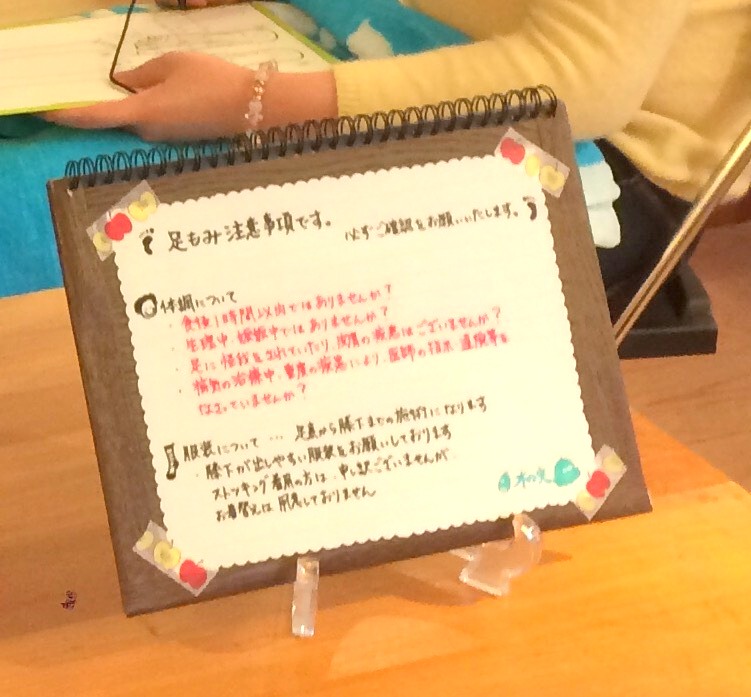 足もみ注意事項です。
必ずご確認をお願いいたします。
体調について
・食後1時間以内ではありませんか？
・生理中、妊娠中ではありませんか？
・足に怪我をされていたり、関節の疾患はございませんか？
・病気の治療中、重度の疾患により、医師の指示、通院等を
なさっていませんか？
服装について… 足裏から膝下までの施術になります
・膝下が出しやすい服装をお願いしております
ストッキング着用の方は、申し訳ございませんが、
お着替えは用意しておりません
木の実